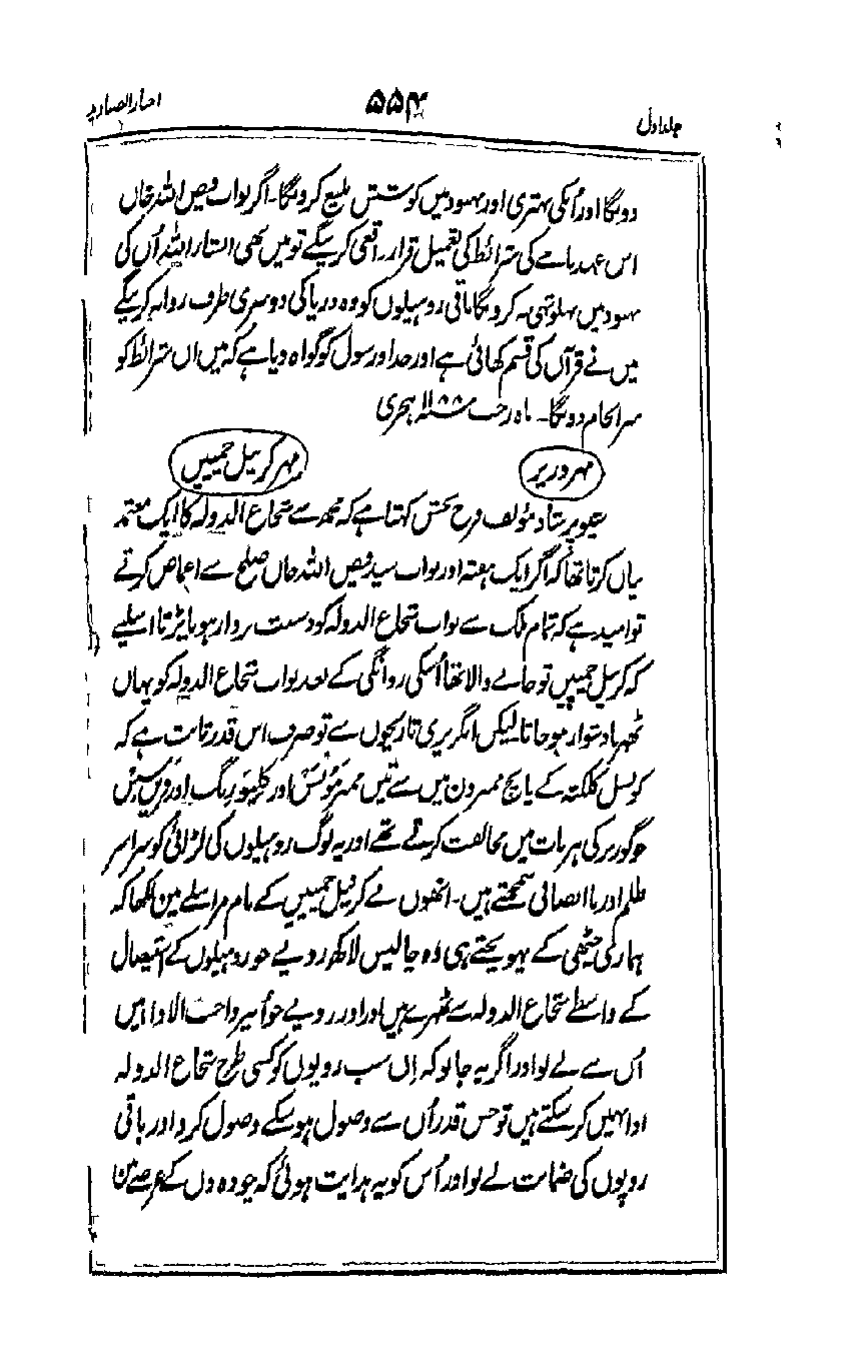 جلد اول ۵۵۴ اخبار الصنادید
دونگا اور اُنکی بہتری اور بہبود میں کوشش بلیغ کرونگا۔ اگر نواب فیض اللہ خاں
اس عہد نامے کی شرائط کی تعمیل قرار واقعی کرینگے تو میں بھی انشاراللہ اُن کی
بہبود میں پہلو تہی نہ کرونگا باقی روہیلوں کو وہ دریا کی دوسری طرف روانہ کرینگے
میں نے قرآن کی قسم کھائی ہے اور خدا اور رسول کو گواہ دیا ہے کہ میں ان شرائط کو
سرانجام دونگا۔ ماہ رجب ۱۱۸۸ ہجری
مہر وزیر مہر کرنیل چمپین
شیو پرشاد مؤلف فرح بخش کہتا ہے کہ مجھ سے شجاع الدولہ کا ایک معتمد
بیان کرتا تھا کہ اگر ایک ہفتہ اور نواب سید فیض اللہ خاں صلح سے اغماض کرتے
تو امید ہے کہ تمام ملک سے نواب شجاع الدولہ کو دست بردار ہونا پڑتا اسلیے
کہ کرنیل چمپین تو جانے والا تھا اُسکی روانگی کے بعد نواب شجاع الدولہ کو یہاں
ٹھہرنا دشوار ہو جاتا۔ لیکن انگریزی تاریخوں سے تو صرف اس قدر ثابت ہے کہ
کونسل کلکتہ کے پانچ ممبرون میں سے تین ممبر مونسن اور کلیورنگ اور فرینسس
جو گورنر کی ہر بات میں مخالفت کرتے تھے اور یہ لوگ روہیلوں کی لڑائی کو سراسر
ظلم اور نا انصافی سمجھتے ہیں۔ انھوں نے کرنیل چمپین کے نام مراسلے مین لکھا کہ
ہماری چٹھی کے پہونچتے ہی وہ چالیس لاکھ روپے جو روہیلوں کے استیصال
کے واسطے شجاع الدولہ سے ٹھہرے ہیں اور اور روپے جو اُسپر واجب الادا ہیں
اُس سے لے لو اور اگر یہ جانو کہ اِن سب روپوں کو کسی طرح شجاع الدولہ
ادا نہیں کر سکتے ہیں تو جس قدر اُن سے وصول ہو سکے وصول کرو اور باقی
روپوں کی ضمانت لے لو اور اُس کو یہ ہدایت ہوئی کہ چودہ دن کے عرصے مین